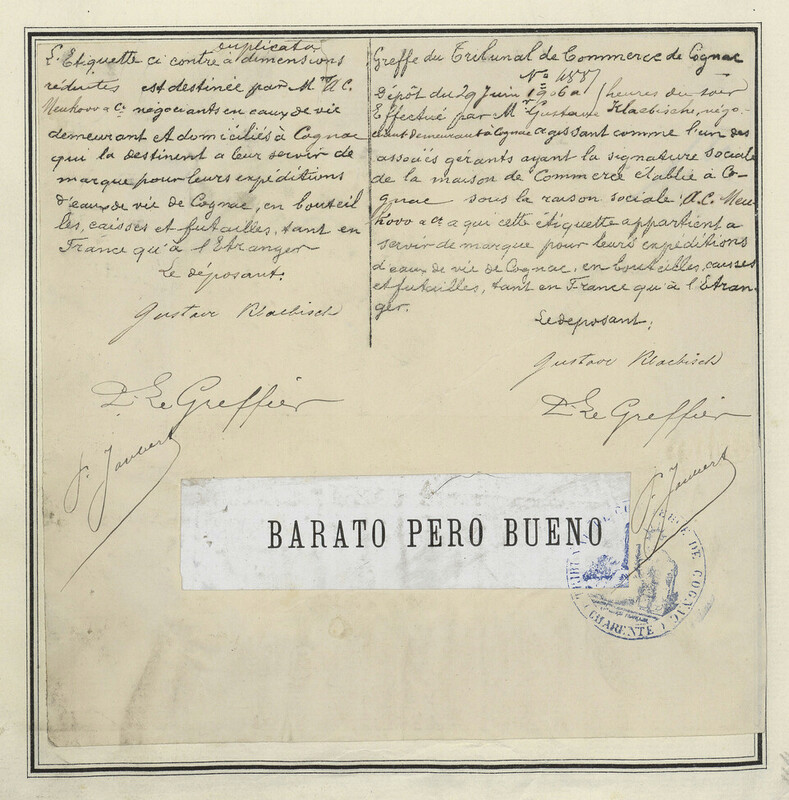 duplicata
L'Etiquette ci contre à dimensions
réduites est destinée par M.rs A.C.
Meukow & Co négociants en eaux de vie
demeurant et domiciliés à Cognac
qui la destinent a leur servir de
marque pour leurs expéditions
d'eaux de vie de Cognac, en bouteil
les, caisses et futailles, tant en
France qu'à l'Etranger
Le deposant.
Gustave Klaebisch
D. Le Greffier
Greffe du Tribunal de Commerce de Cognac
Dépôt du 29 Juin 1906 a heures du soir
Effectué par Mr Gustave Klaebisch, négo-
ciant demeurant à Cognac agissant comme l'un des
associés gérants ayant la signature sociale
de la maison de Commerce établie à Co-
gnac sous la raison sociale A.C. Meu-
kow & Co a qui cette étiquette appartient a
servir de marque pour leurs expéditions
d'eaux de vie de Cognac, en bouteilles, caisses
et futailles, tant en France qu'à l'Etran-
ger.
Le deposant,
Gustave Klaebisch
D. Le Greffier
BARATO PERO BUENO
DE COGNAC
(CHARENTE)